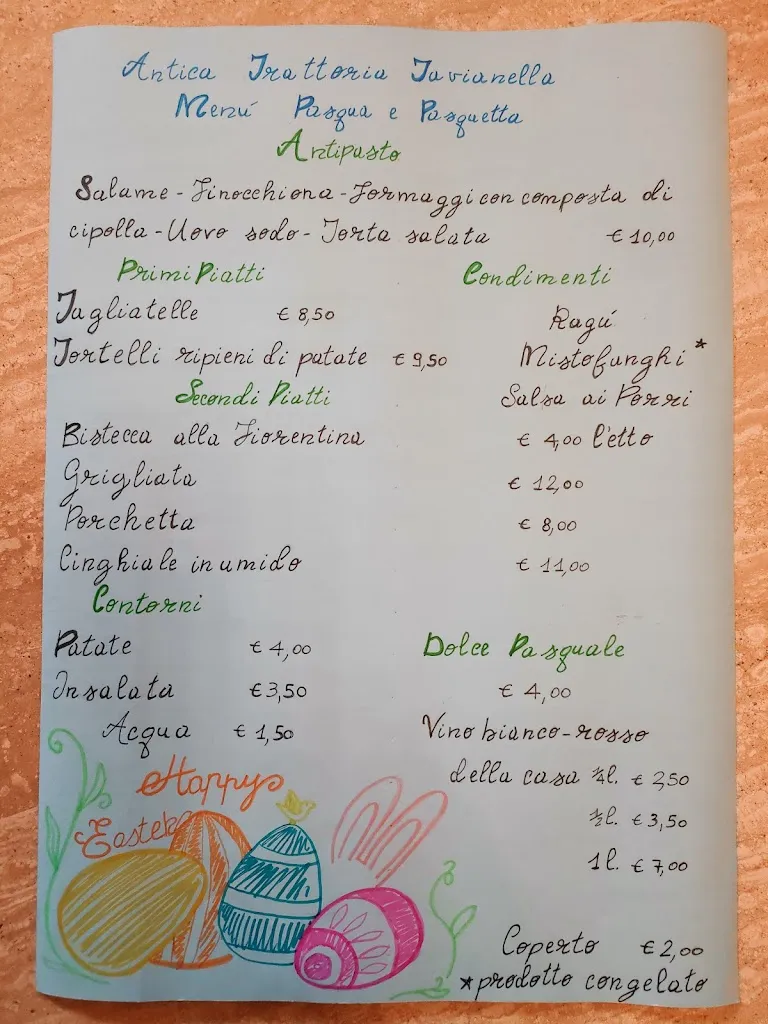 Antica Trattoria Tavianella
Menú Pasqua e Pasquetta
Antipasto
Salame - Finocchiona - Formaggi con composta di
cipolla - Uovo sodo - Torta salata € 10,00
Primi Piatti
Condimenti
Tagliatelle € 8,50
Ragú
Tortelli ripieni di patate € 9,50
Misto funghi *
Salsa ai Porri
Secondi Piatti
Bistecca alla Fiorentina € 4,00 l'etto
Grigliata € 12,00
Porchetta € 8,00
Cinghiale in umido € 11,00
Contorni
Patate € 4,00
Insalata € 3,50
Acqua € 1,50
Dolce Pasquale
€ 4,00
Vino bianco - rosso
della casa ¼ l. € 2,50
½ l. € 3,50
1 l. € 7,00
Happy
Easter
Coperto € 2,00
* prodotto congelato